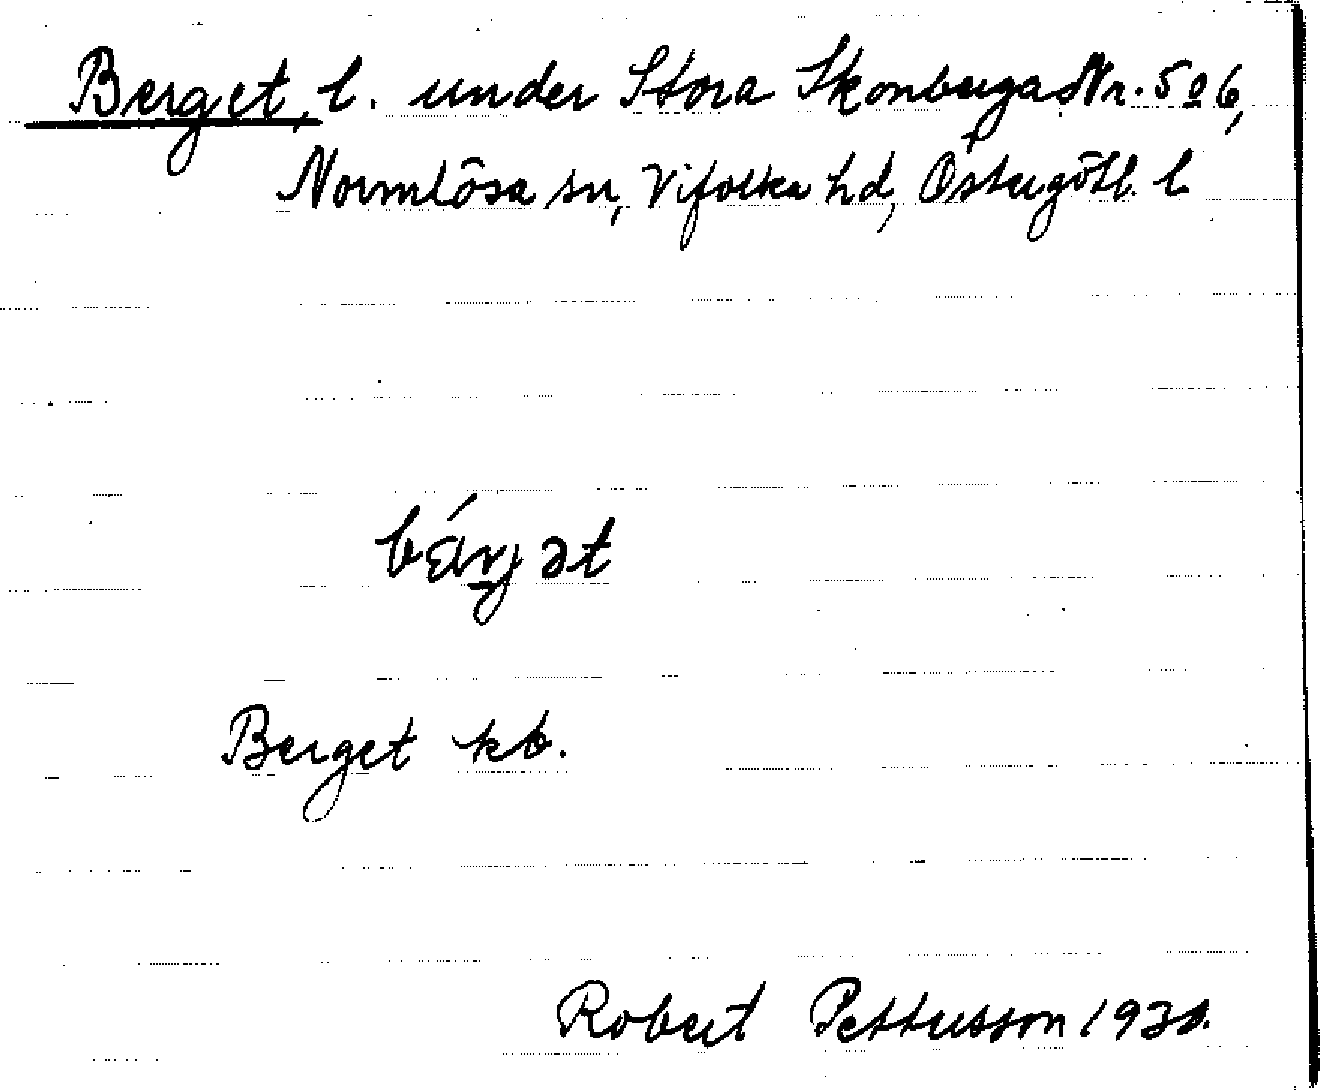 Berget, l. under Stora Skonberga Nr. 5 o 6,
Normlösa sn, Vifolka hd, Östergötl. l
Berget kb.
Robert Pettersson